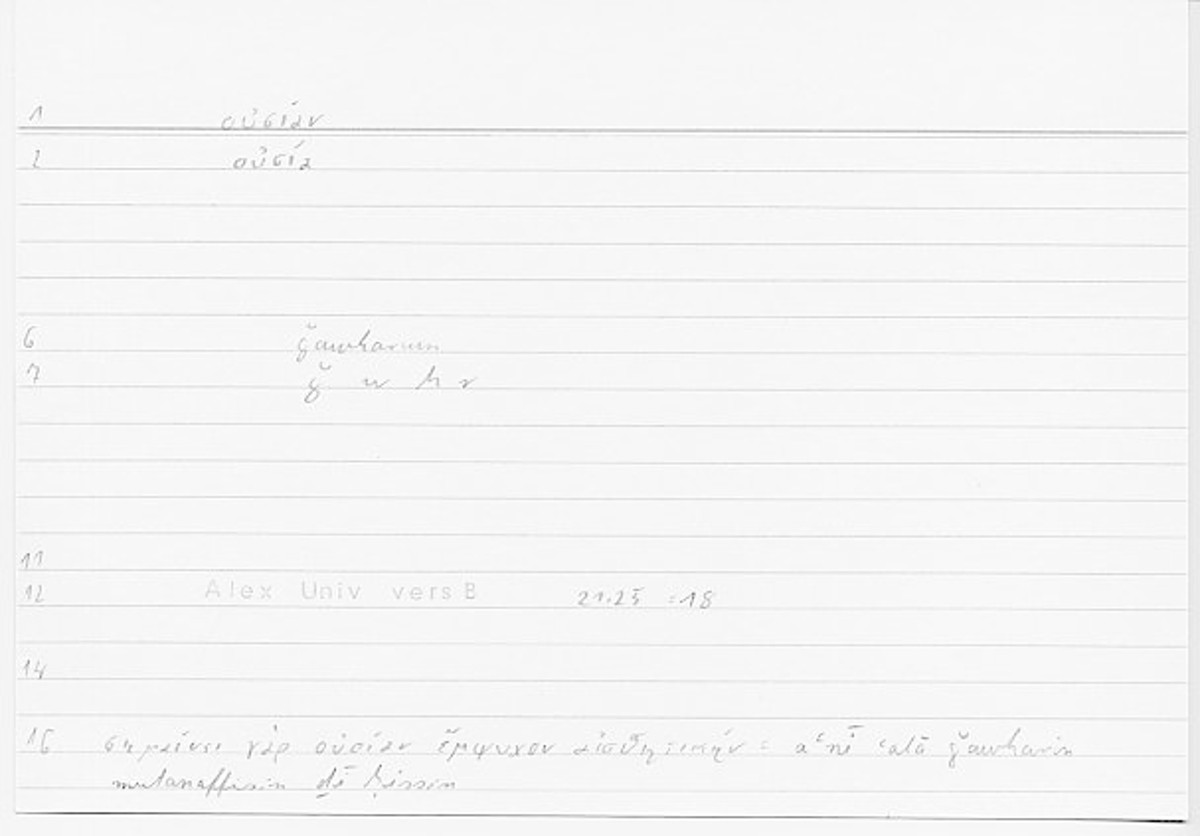 1 οὐσίαν
2 οὐσία
6 ǧawharun
7 ǧ w h r
11
12 Alex Univ vers B 21.25 = 18
14
15 σημαίνει γὰρ οὐσίαν ἔμψυχον αἰσθητικήν = aʿnī ʿalā ǧawharin
mutanaffisin ḏī ḥissin